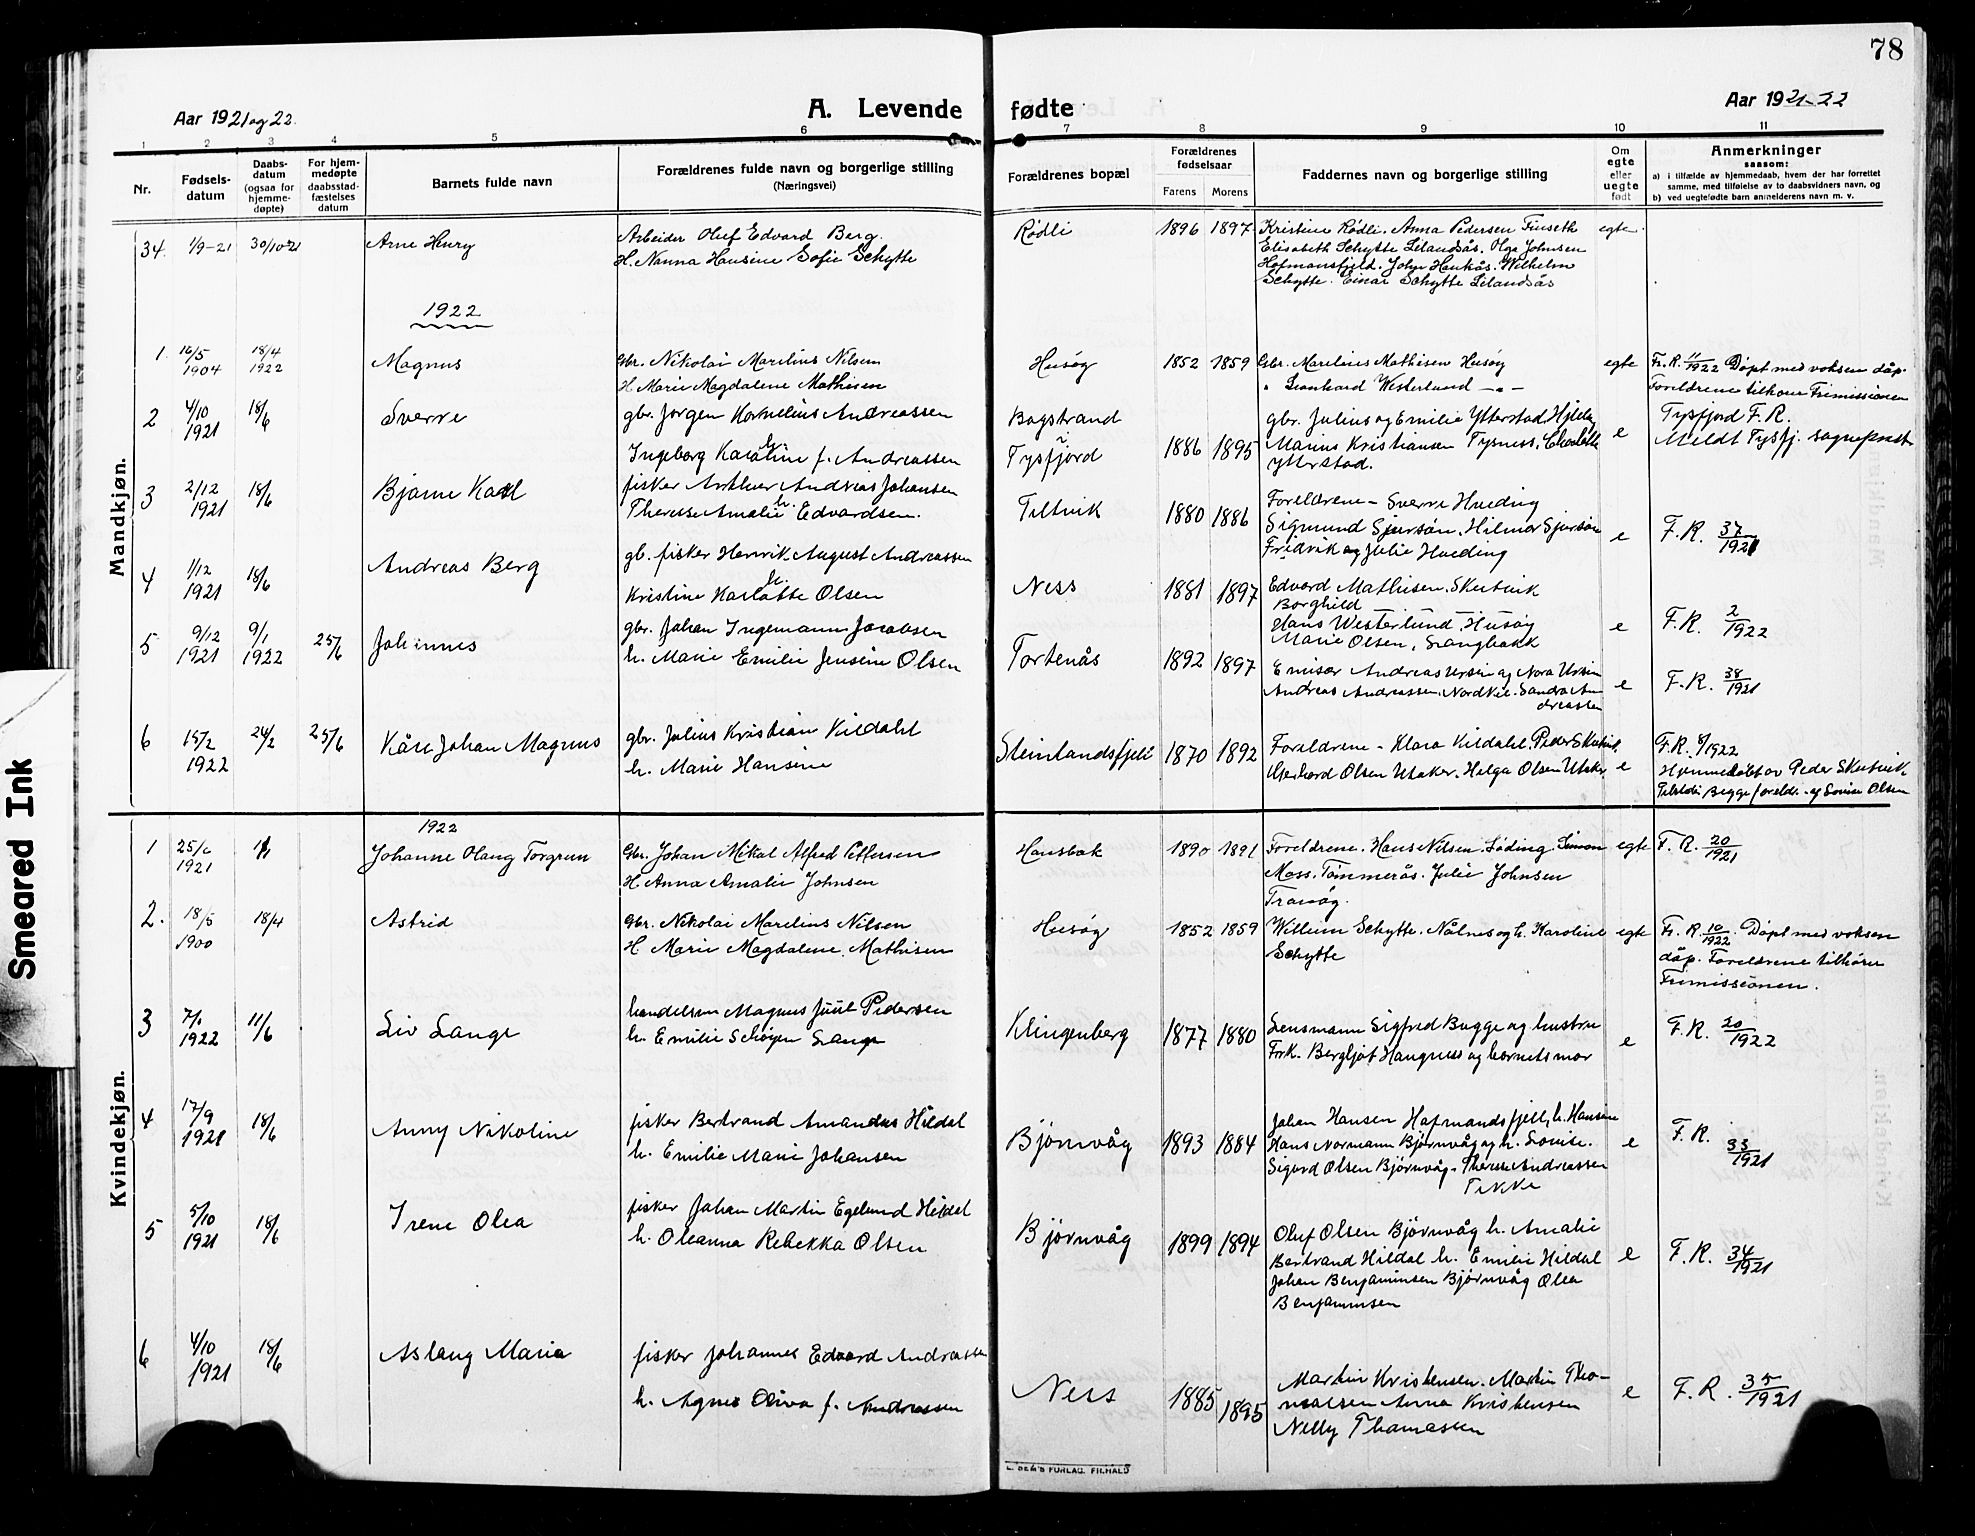 78
Aar 1921 og 22.
A. Levende fødte
Aar 1921-22
1 2 3 4 5 6 7 8 9 10 11
Nr.
Fødsels-
datum
Daabs-
datum
(ogsaa for
hjemme-
døpte)
For hjem-
medøpte
daabsstad-
fæstelses
datum
Barnets fulde navn
Forældrenes fulde navn og borgerlige stilling
(Næringsvei)
Forældrenes bopæl
Forældrenes
fødselsaar
Farens Morens
Faddernes navn og borgerlige stilling
Om
egte
eller
uegte
født
Anmerkninger
saasom:
a) i tilfælde av hjemmedaab, hvem der har forrettet
samme, med tilføielse av to daabsvidners navn, og
b) ved uegtefødte barn anmelderens navn m. v.
Mandkjøn.
34. 1/9-21 30/10-21 Arne Henry
Arbeider Oluf Edvard Berg.
H. Nanna Hansine Sofie Schytte
Rødli 1896 1897
Kristine Rødli. Anna Pedersen Finseth
Elisabeth Schytte Lilandsås. Olga Johnsen
Hofmansfjeld. John Haukås. Wilhelm
Schytte. Einar Schytte Lilandsås
egte
1922
1. 16/5 1904 18/4 1922 Magnus
Gbr. Nikolai Marelius Nilsen
H. Marie Magdalene Mathisen
Husøy 1852 1859
Gbr. Marelius Mathisen Husøy
" Leonhard Westerlund — " —
egte
Fr. R. 11/1922 Døpt med voksen dåp.
Foreldrene tilhører Frimissionen
2 4/10 1921 18/6 Sverre
gbr. Jørgen Kornelius Andreassen
Ingeborg Karoline f. Andreassen
Bogstrand
Tysfjord
1886 1895
gbr. Julius og Emilie Ytterstad,
Marius Kristiansen Tysness,
Ytterstad.
e
Tysfjord F. R.
Meldt Tysfj. sogneprest
3 2/12 1921 18/6 Bjarne Karl
fisker Arthur Andreas Johansen
Therese Amalie Edvardsen.
Tiltvik 1880 1886
Foreldrene - Sverre Hveding
Sigmund Sjursøn, Hilmar Sjursøn
Fridrik og Julie Hveding
e
F. R. 37/1921
4 1/12 1921 18/6 Andreas Berg
gb. fisker Henrik August Andreassen
h. Kristine Karlotte Olsen
Ness 1881 1897
Edvard Mathisen, Skutvik
Borghild
Hans Westerlund, Husøy
Marie Olsen, Langbakk
e
F. R. 2/1922
5 9/12 1921 9/1 1922 25/6 Johannes
gbr. Johan Ingemann Jacobsen
h. Marie Emilie Jensine Olsen
Tortenås 1892 1897
Emisær Andreas Ursin og Nora Ursin
Andreas Andreassen, Nordkil. Sandra An
dreassen
e
F. R. 38/1921
6 15/2 1922 24/2 25/6 Kåre Johan Magnus
gbr. Julius Kristian Kildahl
h. Marie Hansine
Steinlandsfjell 1870 1892
Foreldrene - Klara Kildahl, Peder Skutvik,
Gerhard Olsen Utaker, Helga Olsen Utaker
e
F. R. 8/1922
Hjemmedøbt av Peder Skutvik
Begge foreldr. og Lovise Olsen
Kvindekjøn.
1922
1 25/6 1921 Johanne Olaug Torgrun
Gbr. Johan Mikal Alfred Pettersen
H. Anna Amalie Johnsen
Hansbak 1890 1891
Foreldrene. Hans Nilsen Løding. Simon
Moss, Tømmerås. Julie Johnsen
Tranøy.
egte
F. R. 20/1921
2. 18/5 1900 18/4 Astrid
Gbr. Nikolai Marelius Nilsen
H. Marie Magdalene Mathisen
Husøy 1852 1859
Willum Schytte. Nålnes og h. Karoline
Schytte
egte
Fr. R. 10/1922. Døpt med voksen
dåp. Foreldrene tilhører
Frimissionen.
3 7/1 1922 11/6 Liv Lange
handelsm Magnus Juul Pedersen
h. Emilie Schøyen Lange
Klingenberg 1877 1880
Lensmann Sigfred Bugge og hustru
Frk. Bergljot Haugness og barnets mor
e
F. R. 20/1922
4 17/9 1921 18/6 Anny Nikoline
fisker Bertrand Amandus Hildal
h. Emilie Marie Johansen
Bjørnvåg 1893 1884
Johan Hansen Hafmandsfjell, h. Hansine
Hans Normann Bjørnvåg og h. Lovise.
Sigurd Olsen Bjørnvåg - Therese Andreassen
e
F. R. 33/1921
5 5/10 1921 18/6 Irene Olea
fisker Johan Martin Egelund Hildal
h. Oleanna Rebekka Olsen
Bjørnvåg 1899 1894
Oluf Olsen Bjørnvåg h. Amalie
Bertrand Hildal h. Emilie Hildal
Johan Benjaminsen Bjørnvåg Olea
Benjaminsen
e
F. R. 34/1921
6 4/10 1921 18/6 Aslaug Marie
fisker Johannes Edvard Andreassen
h. Agnes Oliva f. Andreassen
Ness 1885 1895
Martin Kristensen. Martin Tho-
massen Anna Kristensen
Nelly Thomassen
e
F. R. 35/1921
E. SEM'S FORLAG, FR.HALD
Smeared Ink